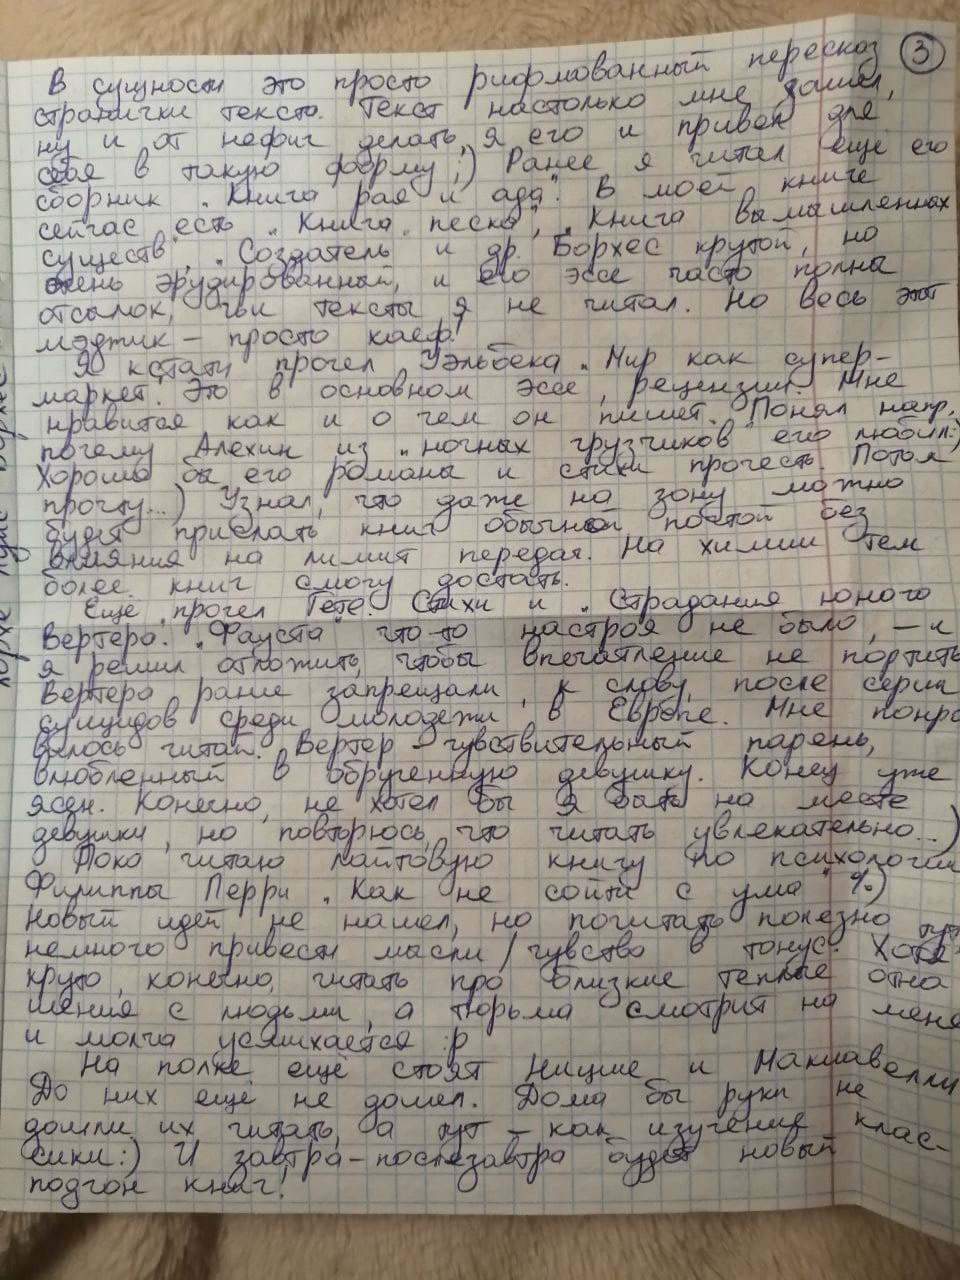 3
В сущности это просто рифмованный пересказ
странички текста. Текст настолько мне зашел,
ну и от нефиг делать, я его и привел для
себя в такую форму ;) Ранее я читал еще его
сборник „Книга рая и ада". В моей книге
сейчас есть „Книга песка", „Книга вымышленных
существ", „Создатель" и др. Борхес крутой, но
очень эрудированный, и его эссе часто полны
отсылок, чьи тексты я не читал. Но весь этот
мэджик – просто каеф!
Я кстати прочел Уэльбека „Мир как супер-
маркет". Это в основном эссе, рецензии. Мне
нравится как и о чем он пишет. Понял напр.
почему Алехин из „ночных грузчиков" его любил:)
Хорошо бы его романы и стихи прочесть. Потом
прочту...) Узнал, что даже на зону можно
будет прислать книг обычной почтой без
влияния на лимит передач. На химии тем
более книг смогу достать.
Еще прочел Гёте. Стихи и „Страдания юного
Вертера". „Фауста" что-то настроя не было, – и
я решил отложить, чтобы впечатление не портить
Вертера ранее запрещали, к слову, после серии
суицидов среди молодежи в Европе. Мне понра
вилось читать. Вертер – чувствительный парень,
влюбленный в обрученную девушку. Конец уже
ясен. Конечно, не хотел бы я быть на месте
девушки, но повторюсь, что читать увлекательно...)
Пока читаю лайтовую книгу по психологии
Филиппы Перри „Как не сойти с ума" %)
Новый идей не нашел, но почитать полезно тут
немного привести мысли/чувства в тонус. Хотя
круто, конечно, читать про близкие теплые отно
шения с людьми, а тюрьма смотрит на меня
и молча усмихается :р
На полке ещё стоят Ницше и Макиавелли
До них ещё не дошел. Дома бы руки не
дошли их читать, а тут – как изучение клас-
сики:) И завтра-послезавтра будет новый
подгон книг!
Хорхе Луис Борхес